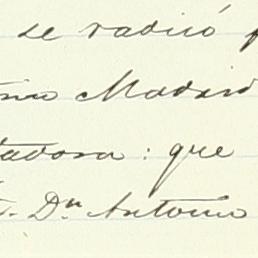 se radicó
Madrid
tadora: que
Dn Antonio